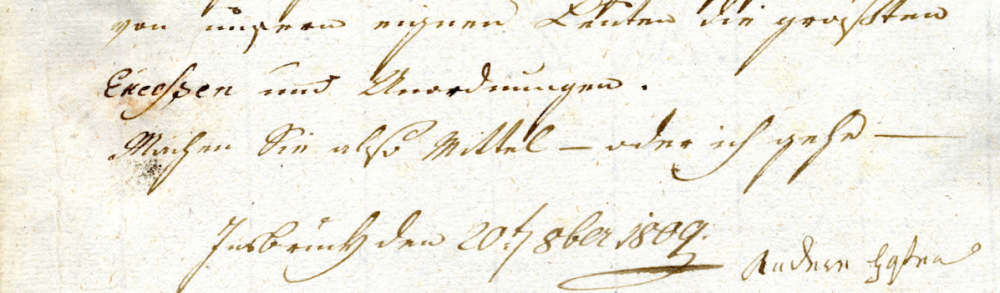 von unsern eignen Leuten die größten
Excessen und Unordnungen.
Machen Sie also Mittel – oder ich gehe –
Insbruck den 20t 8ber 1809.
Andere Hofer